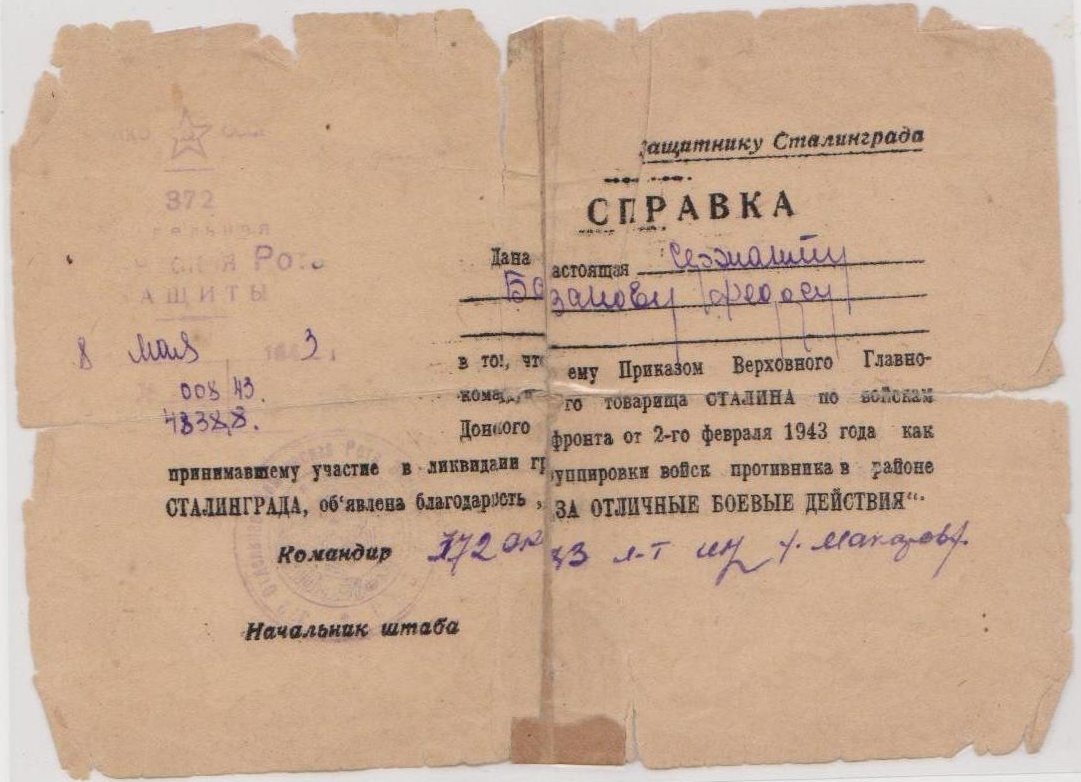 НКО СССР
372
дельная
ческая Рота
АЩИТЫ
8 мая 1943 г
№ 00843
48388.
защитнику Сталинграда
СПРАВКА
Дана настоящая Сержанту
Базанову Федосу
в том, что ему Приказом Верховного Главно-
команд го товарища СТАЛИНА по войскам
Донского фронта от 2-го февраля 1943 года как
принимавшему участие в ликвидаии группировки войск противника в районе
СТАЛИНГРАДА, об‘явлена благодарость „ЗА ОТЛИЧНЫЕ БОЕВЫЕ ДЕЙСТВИЯ“.
Командир 372 ОРХЗ л-т Макаров
Начальник штаба